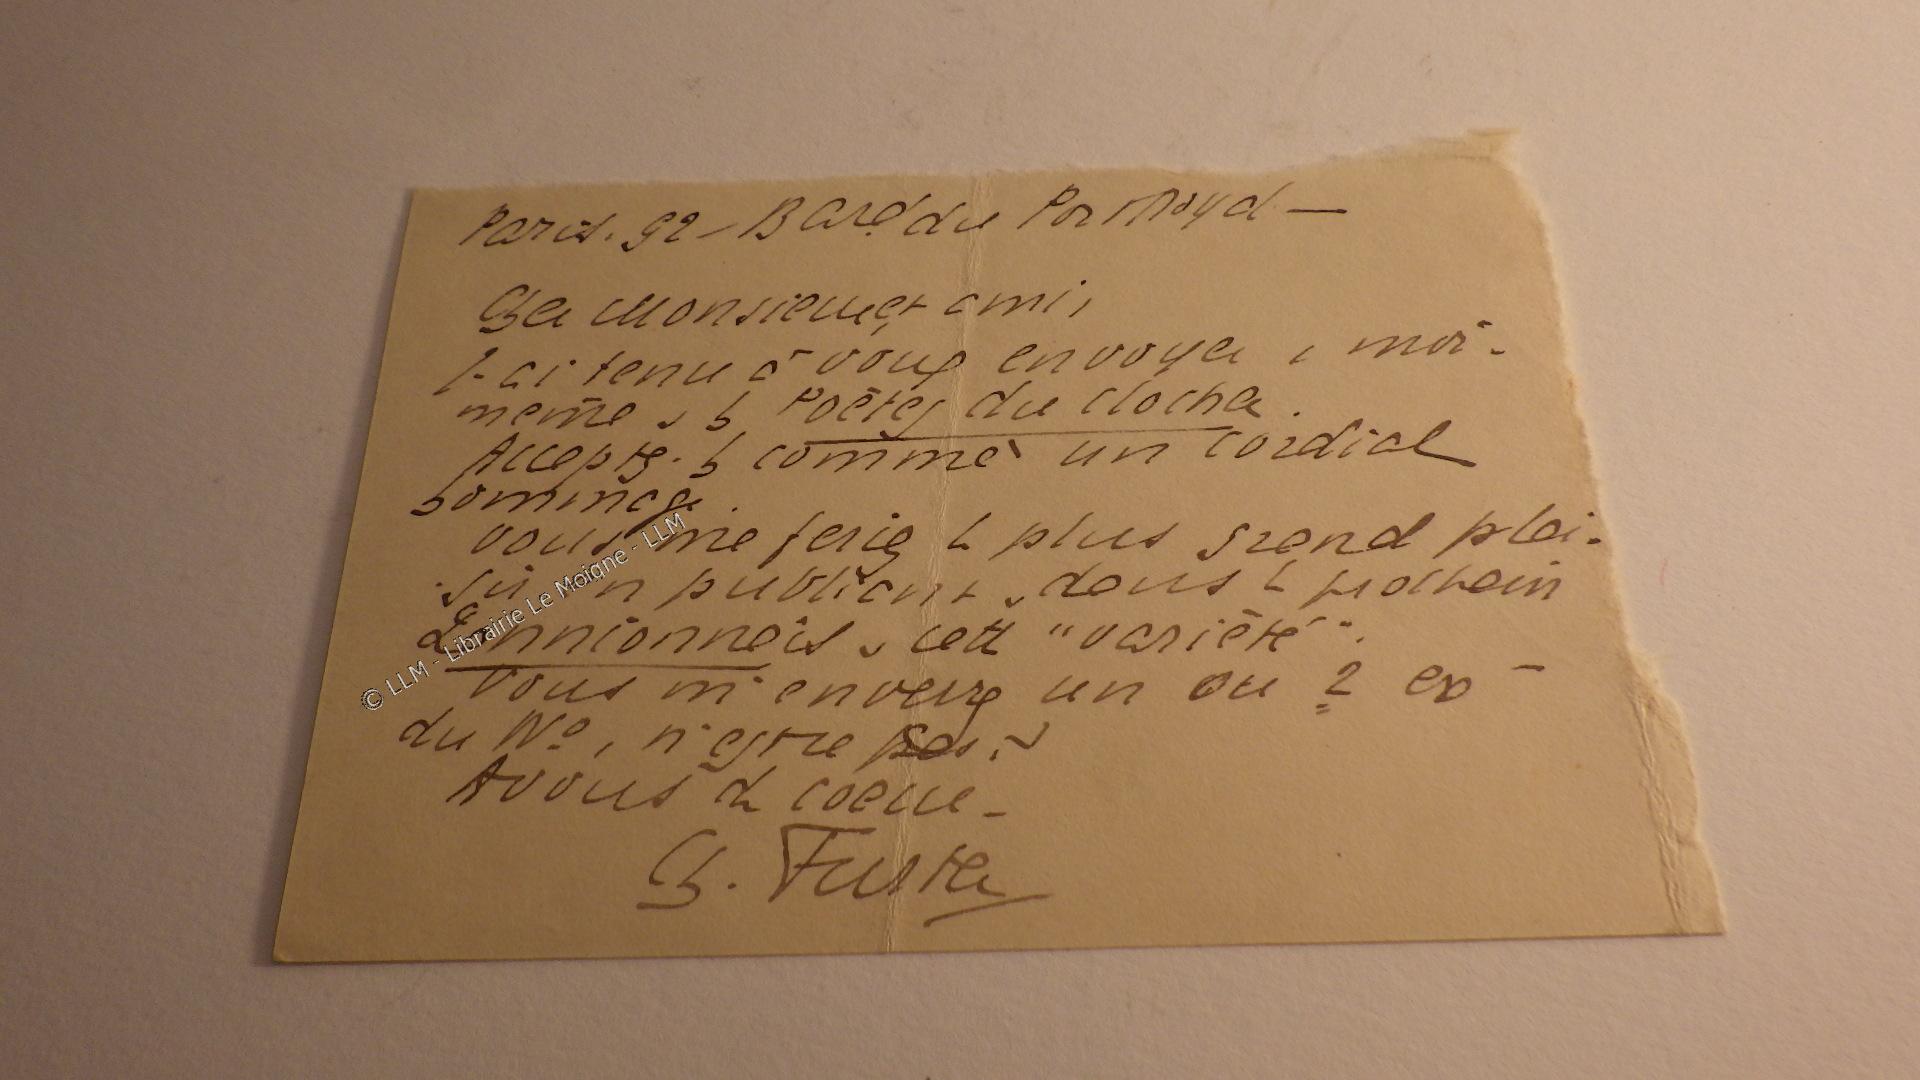 Paris. 92 - Bard du Port Royal -
Cher Monsieur et ami,
J'ai tenu à vous envoyer, moi-
même, les Poètes du clocher.
Acceptez-les comme un cordial
hommage.
Vous me feriez le plus grand plai-
sir en publiant, dans le prochain
Lannionnais, cette "variété".
Vous m'enverrez un ou 2 ex
du No, n'est-ce pas ?
A vous de coeur -
Ch. Fuster
© LLM - Librairie Le Moigne - LLM